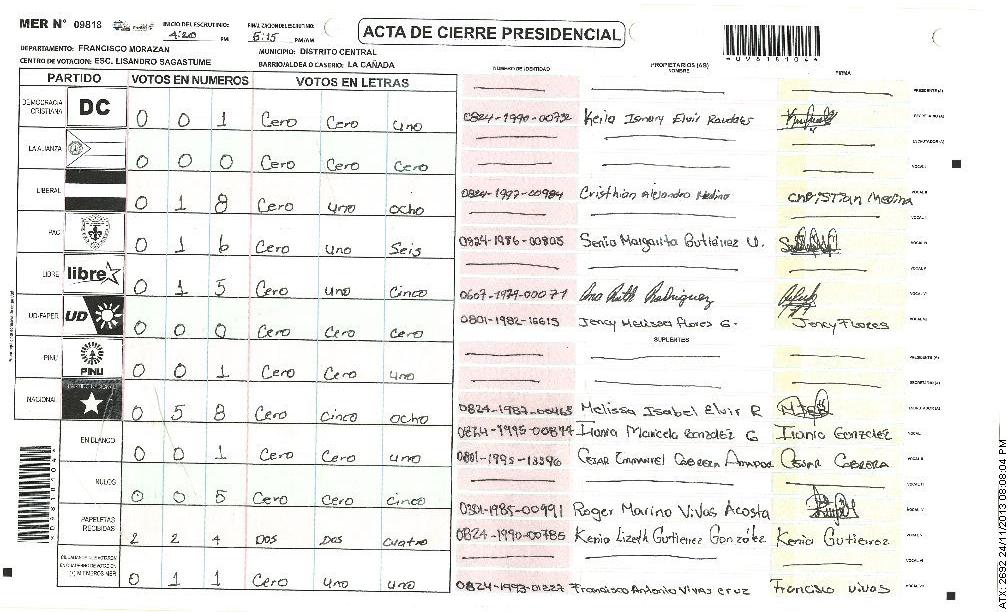 MER N° 09818 INICIO DEL ESCRUTINIO: 4:20 PM FINALIZACION DEL ESCRUTINIO: 5:15 PM/AM
ACTA DE CIERRE PRESIDENCIAL
DEPARTAMENTO: FRANCISCO MORAZAN MUNICIPIO: DISTRITO CENTRAL
CENTRO DE VOTACION: ESC. LISANDRO SAGASTUME BARRIO/ALDEA O CASERIO: LA CAÑADA
PARTIDO VOTOS EN NUMEROS VOTOS EN LETRAS
DEMOCRACIA CRISTIANA DC 0 0 1 Cero Cero uno
LA ALIANZA 0 0 0 Cero Cero Cero
LIBERAL 0 1 8 Cero uno ocho
PAC 0 1 6 Cero uno Seis
LIBRE libre 0 1 5 Cero uno Cinco
UD-FAPER UD 0 0 0 Cero Cero Cero
PINU PINU 0 0 1 Cero Cero uno
NACIONAL 0 5 8 Cero Cinco ocho
EN BLANCO 0 0 1 Cero Cero uno
NULOS 0 0 5 Cero Cero cinco
PAPELETAS RECIBIDAS 2 2 4 Dos Dos cuatro
0 1 1 Cero uno uno
NUMERO DE IDENTIDAD PROPIETARIOS (AS) NOMBRE FIRMA
PRESIDENTE (A)
0824-1990-00732 Keila Ismary Elvir Raudales SECRETARIO (A)
ESCRUTADOR (A)
VOCAL I
0824-1992-00984 Cristhian Alejandro Medina Christian Medina VOCAL II
0824-1986-00805 Senia Margarita Gutierrez V. VOCAL IV
VOCAL V
0607-1979-00071 Ana Ruth Rodriguez
0801-1982-16615 Jency Melissa Flores G. Jency Flores
SUPLENTES
PRESIDENTE (A)
SECRETARIO (A)
0824-1987-00465 Melissa Isabel Elvir R
0824-1995-00874 Irania Maricela Gonzalez G Irania Gonzalez VOCAL I
0801-1995-13396 Cesar Emmanuel Cabrera Cesar Cabrera VOCAL II
0301-1985-00991 Roger Marino Vivas Acosta
0824-1990-00785 Kenia Lizeth Gutierrez Gonzalez Kenia Gutierrez
0824-1993-01227 Francisco Antonio Vivas cruz Francisco vivas
ATX: 2692 24/11/2013 08:08:04 PM